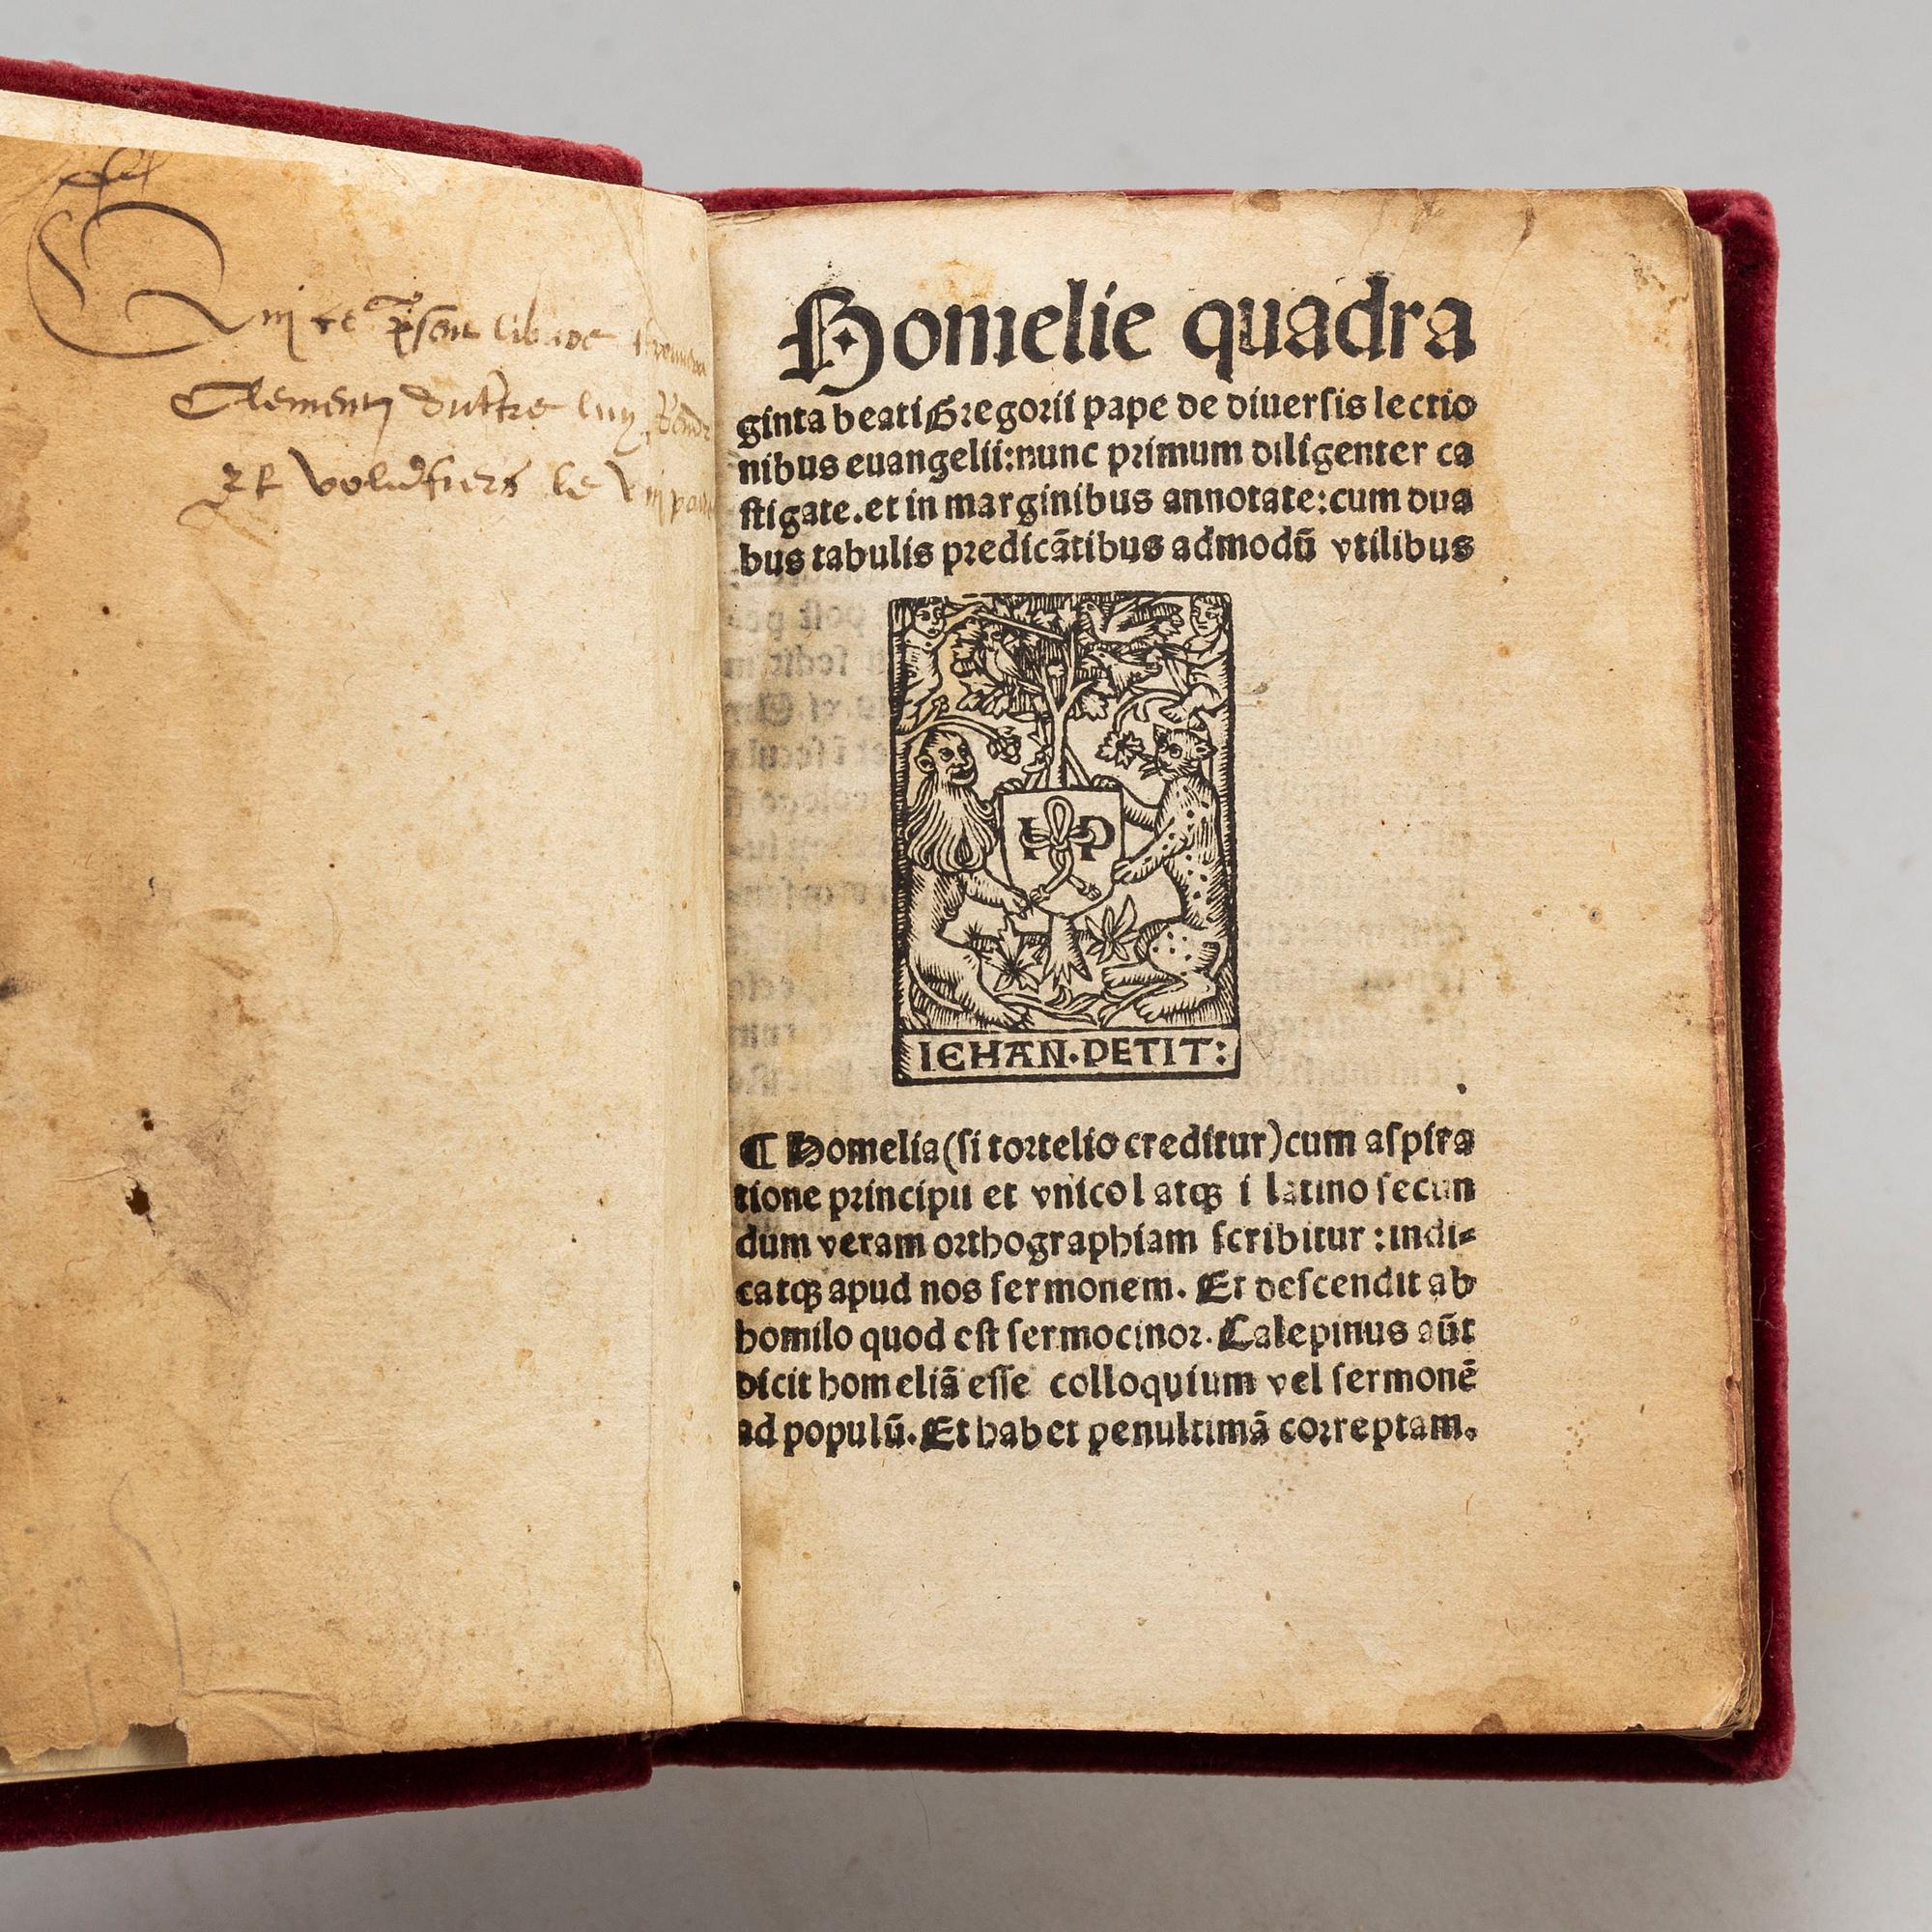 Qui ce p̃sent libvre trouvera
Clement dultre luy Rendr
Et voluntiers le vin paie
Homelie quadra
ginta beati Gregorii pape de diuersis lectio
nibus euangelii:nunc primum diligenter ca
stigate.et in marginibus annotate:cum dua
bus tabulis predicãtibus admodũ vtilibus
I P
IEHAN·PETIT:
¶ Homelia(si tortelio creditur)cum aspira
tione principii et vnico l atqꝫ i latino secun
dum veram orthographiam scribitur:indi⸗
catqꝫ apud nos sermonem. Et descendit ab
homilo quod est sermocinor. Calepinus aũt
dicit homeliã esse colloquium vel sermonẽ
ad populũ. Et habet penultimã correptam.